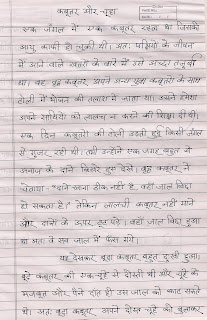 कबूतर और चूहा
एक जंगल में एक कबूतर रहता था जिसकी
आयु काफी हो चुकी थी। अतः पक्षियों के जीवन
में आने वाले खतरों के बारे में उसे अच्छा तजुर्बा
था। वह वृद्ध कबूतर अपने अन्य युवा कबूतरों के साथ
टोली में भोजन की तलाश में जाता था। उसने हमेशा
अपने साथियों को लालच न करने की शिक्षा दी थी।
एक दिन कबूतरों की टोली उड़ती हुई किसी
से गुजर रही थी। तभी उन्होंने एक जगह बहुत से
अनाज के दाने बिखरे हुए देखे। वृद्ध कबूतर ने
बताया- "दाने खाना ठीक नहीं है, वहाँ जाल बिछा
हो सकता है।" लेकिन लालची कबूतर नहीं माने
और दानों के ऊपर टूट पड़े। वहाँ जाल बिछा हुआ
था अतः वे सब जाल में फँस गये।
यह देखकर बूढ़ा कबूतर बहुत दुःखी हुआ।
बूढ़े कबूतर की एक चूहे से दोस्ती थी और चूहे के
मजबूत और पैने दाँत ही उस जाल को काट सकते
थे। अतः बूढ़ा कबूतर अपने दोस्त चूहे को बुलाकर